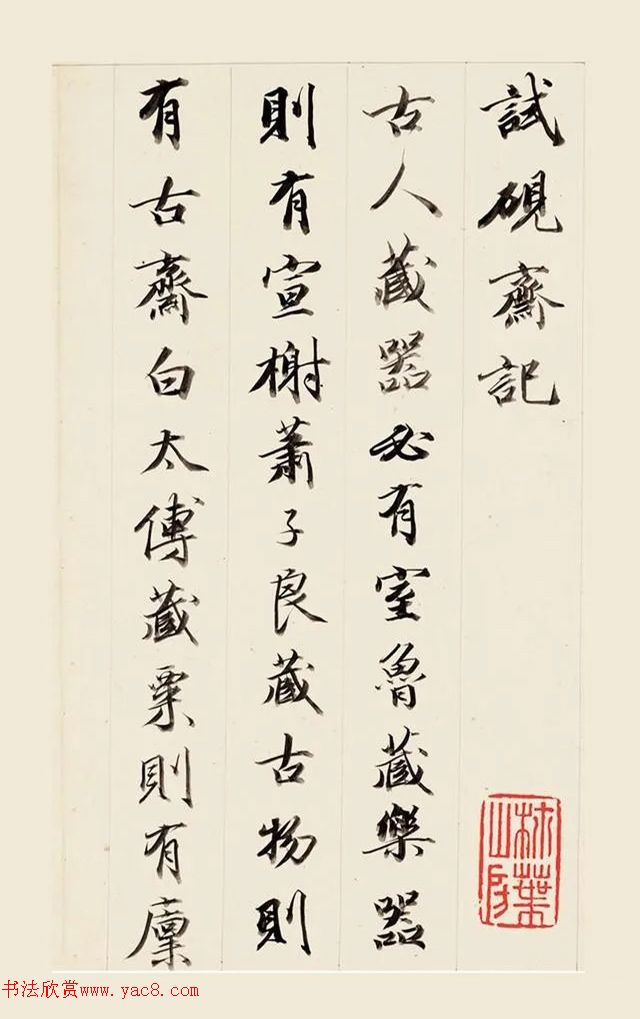 試硯齋記
古人藏器必有室魯藏樂器
則有宣榭蕭子良藏古物則
有古齋白太傅藏粟則有廩
林葉山房
书法欣赏www.yac8.com